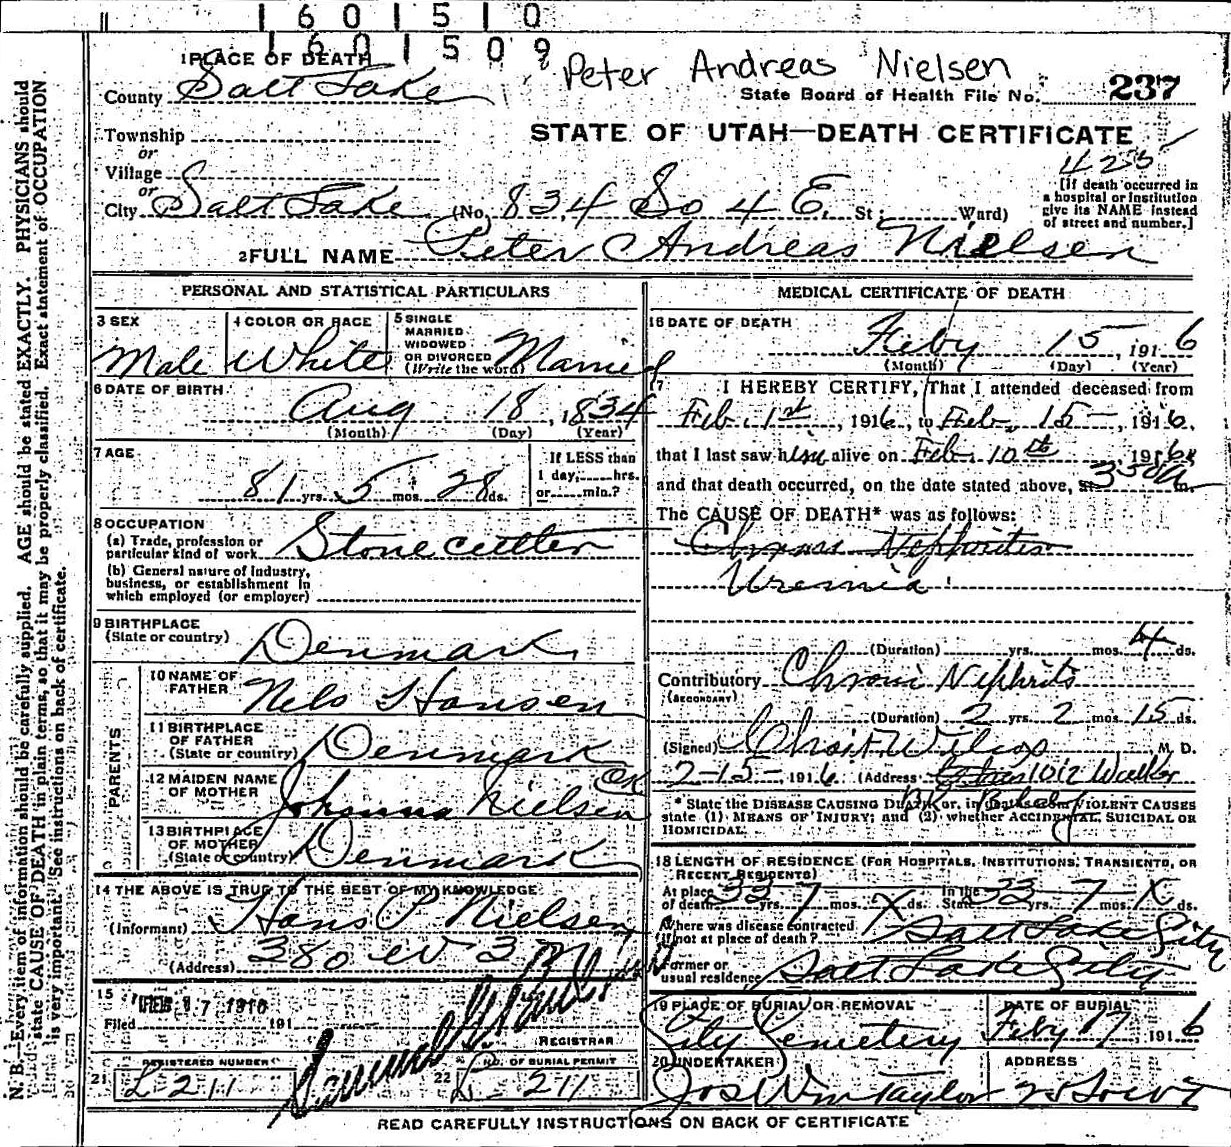 1 6 0 1 5 1 0
1 6 0 1 5 0 9
Peter Andreas Nielsen
1 PLACE OF DEATH
County Salt Lake
State Board of Health File No. 237
Township
or
Village
or
STATE OF UTAH—DEATH CERTIFICATE
[If death occurred in
a hospital or institution
give its NAME instead
of street and number.]
City Salt Lake (No. 834 So 4 E. St; Ward)
2 FULL NAME Peter Andreas Nielsen
PERSONAL AND STATISTICAL PARTICULARS
3 SEX
Male
4 COLOR OR RACE
White
5 SINGLE
MARRIED
WIDOWED
OR DIVORCED
(Write the word) Married
6 DATE OF BIRTH
Aug 18, 1834
(Month) (Day) (Year)
7 AGE
81 yrs. 5 mos. 28 ds.
If LESS than
1 day, hrs.
or min.?
8 OCCUPATION
(a) Trade, profession or
particular kind of work Stone cutter
(b) General nature of Industry,
business, or establishment in
which employed (or employer)
9 BIRTHPLACE
(State or country) Denmark
PARENTS
10 NAME OF
FATHER Nels Hansen
11 BIRTHPLACE
OF FATHER
(State or country) Denmark
12 MAIDEN NAME
OF MOTHER Johanna Nielsen OK
13 BIRTHPLACE
OF MOTHER
(State or country) Denmark
14 THE ABOVE IS TRUE TO THE BEST OF MY KNOWLEDGE
(Informant) Hans P. Nielsen
(Address) 380 W 3 N
15
Filed FEB 17 1916 191
REGISTRAR
REGISTERED NUMBER
21 L-211
NO. OF BURIAL PERMIT
22 L-211
MEDICAL CERTIFICATE OF DEATH
16 DATE OF DEATH
Feby 15, 1916
(Month) (Day) (Year)
17 I HEREBY CERTIFY, That I attended deceased from
Feb. 1st, 1916, to Feb. 15, 1916,
that I last saw him alive on Feb. 10th 1916
and that death occurred, on the date stated above, at 350 a m.
The CAUSE OF DEATH* was as follows:
Chronic Nephritis
Uremia
(Duration) yrs. mos. 4 ds.
Contributory Chroni Nephrits
(SECONDARY)
(Duration) 2 yrs. 2 mos. 15 ds.
(Signed) M. D.
2-15-1916. (Address) 1012 Walker
Bk Bldg
* State the DISEASE CAUSING DEATH, or, in deaths from VIOLENT CAUSES
state (1) MEANS OF INJURY; and (2) whether ACCIDENTAL, SUICIDAL OR
HOMICIDAL.
18 LENGTH OF RESIDENCE (FOR HOSPITALS, INSTITUTIONS, TRANSIENTS, OR
RECENT RESIDENTS)
At place
of death 33 yrs. 7 mos. X ds. In the
State 33 yrs. 7 mos. X ds.
Where was disease contracted
if not at place of death? Salt Lake City
Former or
usual residence Salt Lake City
19 PLACE OF BURIAL OR REMOVAL
City Cemetery
DATE OF BURIAL
Feby 17 1916
20 UNDERTAKER
Jos Wm Taylor
ADDRESS
READ CAREFULLY INSTRUCTIONS ON BACK OF CERTIFICATE
N. B.—Every item of information should be carefully supplied. AGE should be stated EXACTLY. PHYSICIANS should
state CAUSE OF DEATH in plain terms, so that it may be properly classified. Exact statement of OCCUPATION
is very important. See instructions on back of certificate.